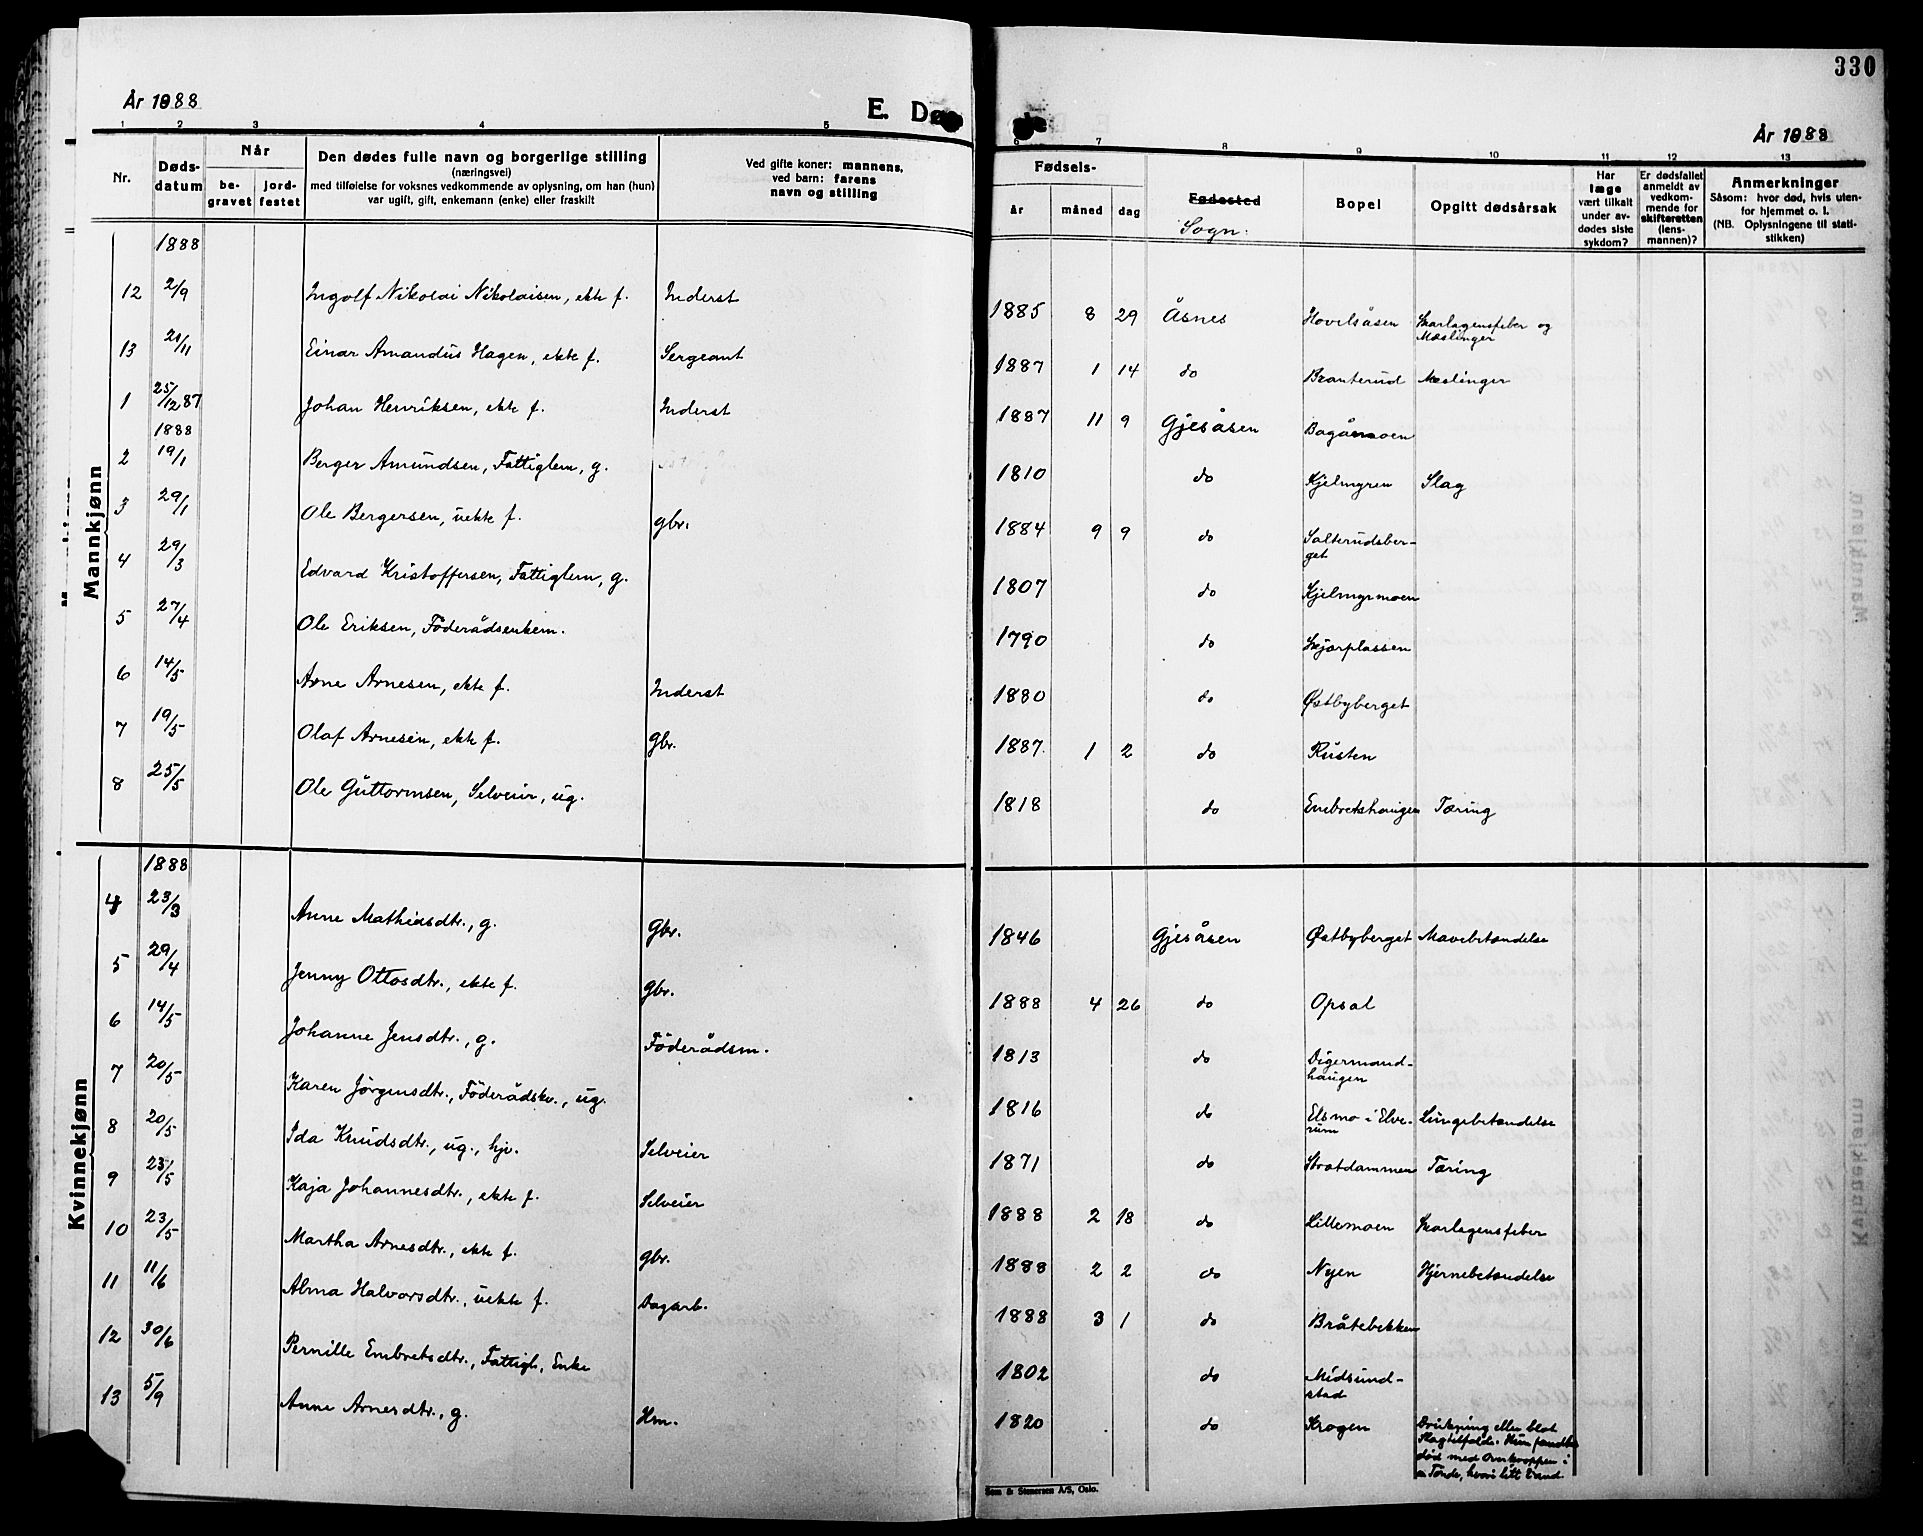 330
År 1888
E. Dø
de
År 1888
1 2 3 4 5
6 7 8 9 10 11 12 13
Nr.
Døds-
datum
Når
be-
gravet
jord-
festet
Den dødes fulle navn og borgerlige stilling
(næringsvei)
med tilføielse for voksnes vedkommende av oplysning, om han (hun)
var ugift, gift, enkemann (enke) eller fraskilt
Ved gifte koner: mannens,
ved barn: farens
navn og stilling
Fødsels-
år måned dag
Fødested
Sogn.
Bopel
Opgitt dødsårsak
Har
læge
vært tilkalt
under av-
dødes siste
sykdom?
Er dødsfallet
anmeldt av
vedkom-
mende for
skifteretten
(lens-
mannen)?
Anmerkninger
Såsom: hvor død, hvis uten-
for hjemmet o. l.
(NB. Oplysningene til stati-
stikken)
Mannkjønn
1888
12 2/9 Ingolf Nikolai Nikolaisen, ekte f. Inderst 1885 8 29 Åsnes Hovelsåsen Skarlagensfeber og
Mæslinger
13 21/11 Einar Amandus Hagen, ekte f. Sergeant 1887 1 14 do Branterud Mæslinger
1 25/12 87 Johan Henriksen, ekte f. Inderst 1887 11 9 Gjesåsen Bagåsmoen
1888
2 19/1 Berger Amundsen, Fattiglem, g. 1810 do Kjelmyren Slag
3 29/1 Ole Bergersen, uekte f. gbr. 1884 9 9 do Salterudsber-
get
4 29/3 Edvard Kristoffersen, Fattiglem, g. 1807 do Kjelmyrmoen
5 27/4 Ole Eriksen, Föderådsenkem. 1790 do Skjærplassen
6 14/5 Arne Arnesen, ekte f. Inderst 1880 do Østbyberget
7 19/5 Olaf Arnesen, ekte f. Gbr. 1887. 1 2 do Rusten
8 25/5 Ole Guttormsen, Selveier, ug. 1818 do Embretshaugen Tæring
Kvinnekjønn
1888
4 23/3 Anne Mathiasdtr., g. Gbr. 1846 Gjesåsen Østbyberget Mavebetændelse
5 29/4 Jenny Ottosdtr., ekte f. Gbr. 1888 4 26 do Opsal
6 14/5 Johanne Jensdtr., g. Föderådsm. 1813 do Digermand-
haugen
7 20/5 Karen Jörgensdtr., Föderådskv., ug. 1816 do Elsmo i Elve-
rum Lungebetændelse
8 20/5 Ida Knudsdtr., ug., hjv. Selveier 1871 do Stratdammen Tæring
9 23/5 Kaja Johannesdtr., ekte f. Selveier 1888 2 18 do Lillemoen Skarlagensfeber
10 23/5 Martha Arnesdtr., ekte f. gbr. 1888 2 2 do Nyen Hjernebetændelse
11 11/6 Alma Halvorsdtr., uekte f. Dagarb. 1888 3 1 do Bråtebekken
12 30/6 Pernille Embretsdtr., Fattigl., Enke 1802 do Midsund-
stad
13 5/9 Anne Arnesdtr., g. Hm. 1820 do Krogen Drukning eller blot
Slagtilfælde. Hun fandtes
död med Overkroppen i
en Tönde, hvori litt Vand
Sem & Stenersen A/S, Oslo.